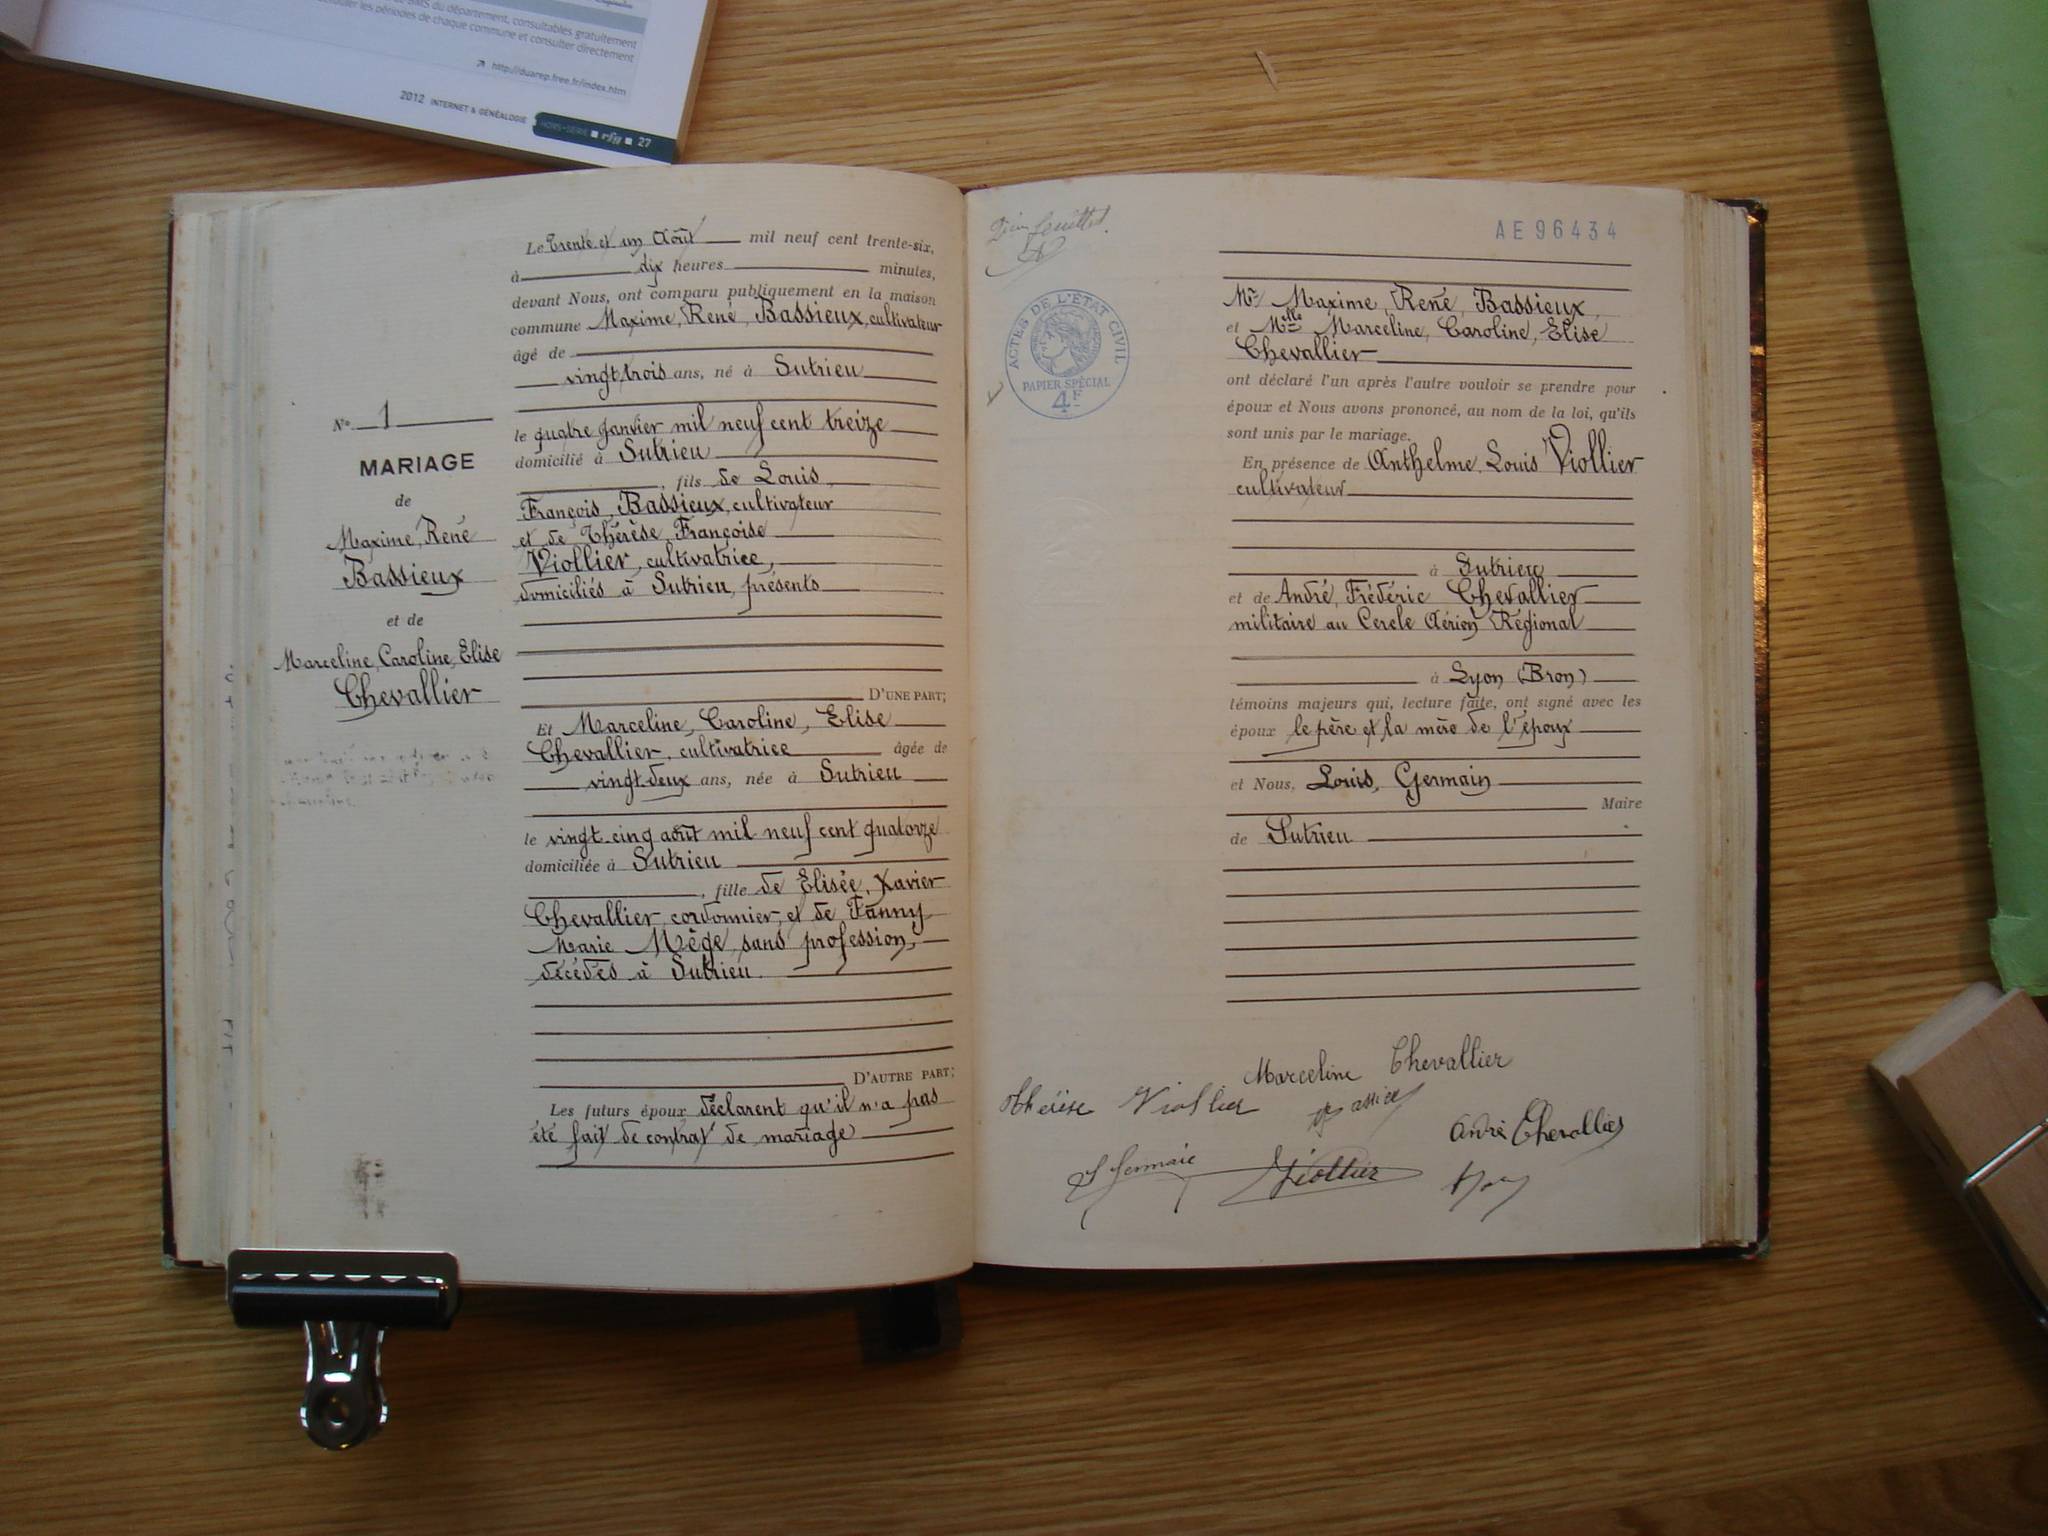 BMS du département, consultables gratuitement
les périodes de chaque commune et consulter directement
http://duarep.free.fr/index.htm
2012 INTERNET & GÉNÉALOGIE HORS-SÉRIE rfg 27
Le Trente et un Août mil neuf cent trente-six,
à dix heures minutes,
devant Nous, ont comparu publiquement en la maison
commune Maxime, René, Bassieux, cultivateur
âgé de
vingt trois ans, né à Sutrieu
le quatre Janvier mil neuf cent treize
domicilié à Sutrieu
, fils de Louis,
François, Bassieux, cultivateur
et de Thérèse, Françoise
Viollier, cultivatrice,
domiciliés à Sutrieu, présents
D'UNE PART;
Et Marceline, Caroline, Elise
Chevallier, cultivatrice âgée de
vingt-deux ans, née à Sutrieu
le vingt-cinq août mil neuf cent quatorze
domiciliée à Sutrieu
, fille de Elisée, Xavier
Chevallier, cordonnier, et de Fanny
Marie Mège, sans profession,
décédés à Sutrieu.
D'AUTRE PART;
Les futurs époux déclarent qu'il n'a pas
été fait de contrat de mariage
No 1
MARIAGE
de
Maxime, René
Bassieux
et de
Marceline, Caroline, Elise
Chevallier
feuillet.
ACTES DE L'ÉTAT CIVIL
PAPIER SPÉCIAL
4F
AE 96434
Mr Maxime, René, Bassieux,
et Mlle Marceline, Caroline, Elise
Chevallier
ont déclaré l'un après l'autre vouloir se prendre pour
époux et Nous avons prononcé, au nom de la loi, qu'ils
sont unis par le mariage.
En présence de Anthelme Louis Viollier
cultivateur
à Sutrieu
et de André, Frédéric Chevallier
militaire au Cercle Aérien Régional
à Lyon (Bron)
témoins majeurs qui, lecture faite, ont signé avec les
époux le père et la mère de l'époux
et Nous, Louis, Germain
Maire
de Sutrieu
Marceline Chevallier
Thérèse Viollier
André Chevallier
Viollier